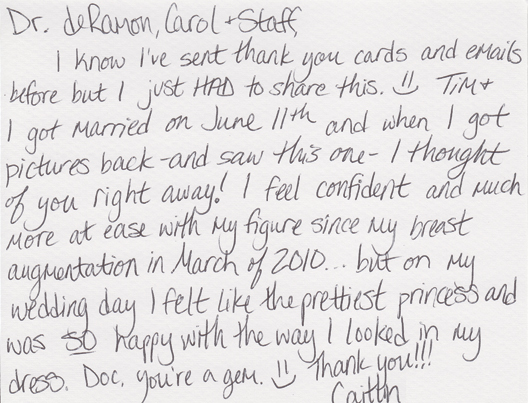 Dr. deRamon, Carol + Staff,
I know I've sent thank you cards and emails
before but I just HAD to share this. Tim +
I got married on June 11th and when I got
pictures back - and saw this one - I thought
of you right away! I feel confident and much
more at ease with my figure since my breast
augmentation in March of 2010... but on my
wedding day I felt like the prettiest princess and
was SO happy with the way I looked in my
dress. Doc, you're a gem. Thank you!!!
Caitlin